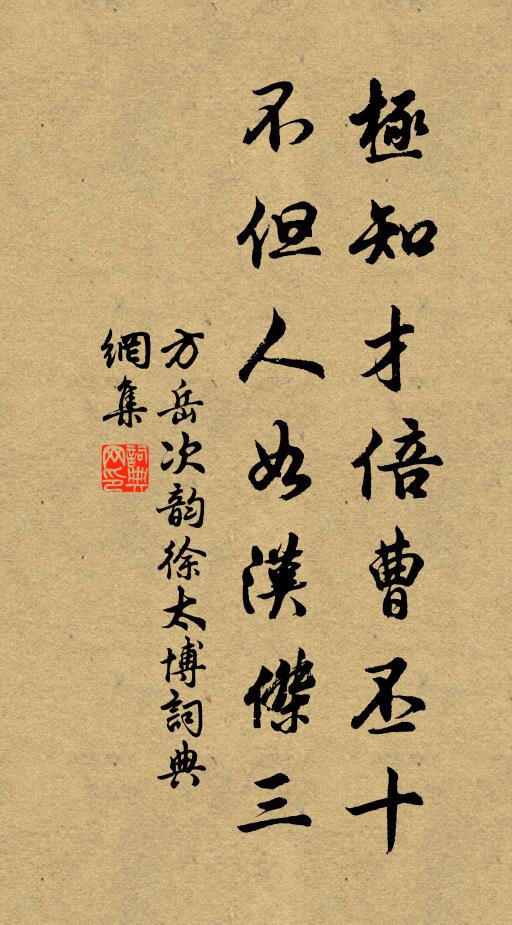 極知才倍曹丕十
不但人如漢傑三
方岳次韵徐太博詞典
網集
詞典網印